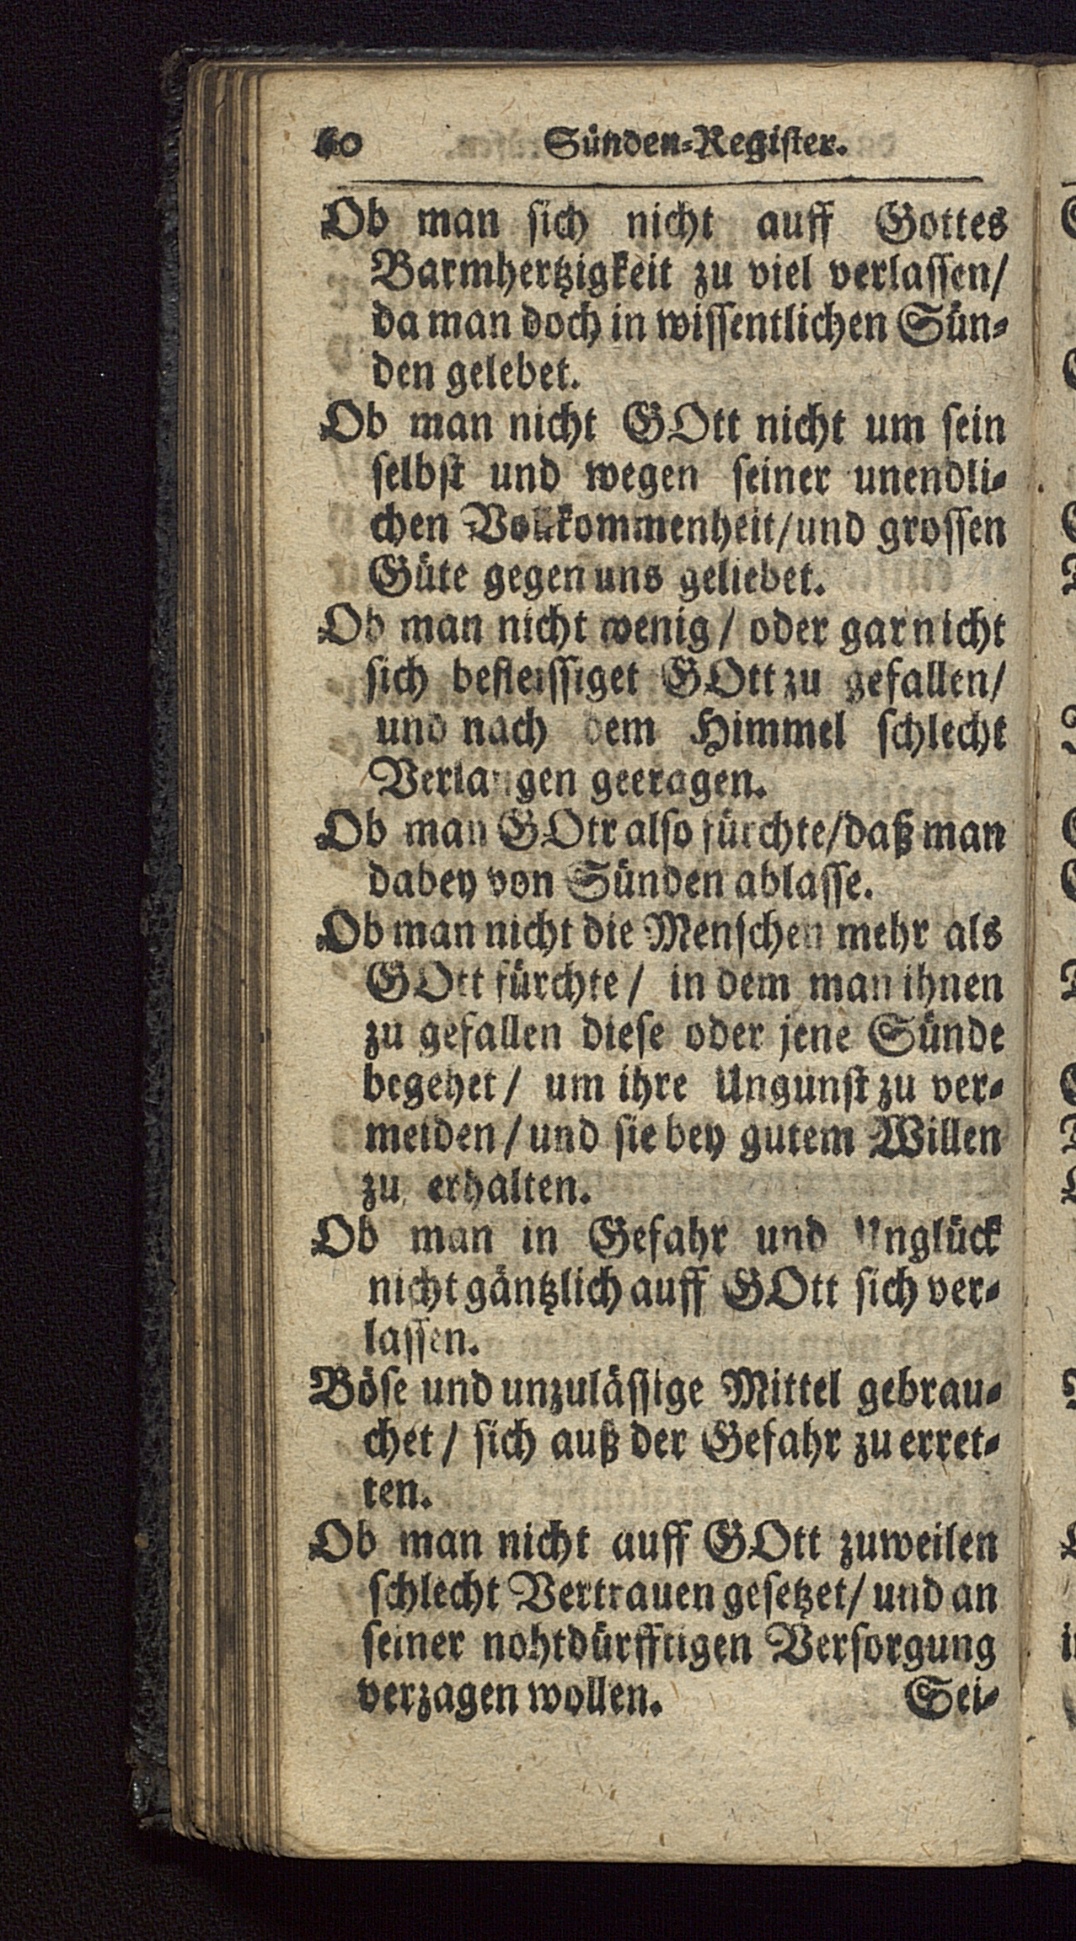 60 Sünden-Register.
Ob man sich nicht auff Gottes
Barmhertzigkeit zu viel verlassen/
da man doch in wissentlichen Sün-
den gelebet.
Ob man nicht GOtt nicht um sein
selbst und wegen seiner unendli-
chen Vollkommenheit/und grossen
Güte gegen uns geliebet.
Ob man nicht wenig / oder gar nicht
sich befleissiget GOtt zu gefallen/
und nach dem Himmel schlecht
Verlangen geeragen.
Ob man GOtt also fürchte/daß man
dabey von Sünden ablasse.
Ob man nicht die Menschen mehr als
GOtt fürchte / in dem man ihnen
zu gefallen diese oder jene Sünde
begehet / um ihre Ungunst zu ver-
meiden / und sie bey gutem Willen
zu erhalten.
Ob man in Gefahr und Unglück
nicht gäntzlich auff GOtt sich ver-
lassen.
Böse und unzulässige Mittel gebrau-
chet / sich auß der Gefahr zu erret-
ten.
Ob man nicht auff GOtt zuweilen
schlecht Vertrauen gesetzet/ und an
seiner nohtdürfftigen Versorgung
verzagen wollen. Sei-